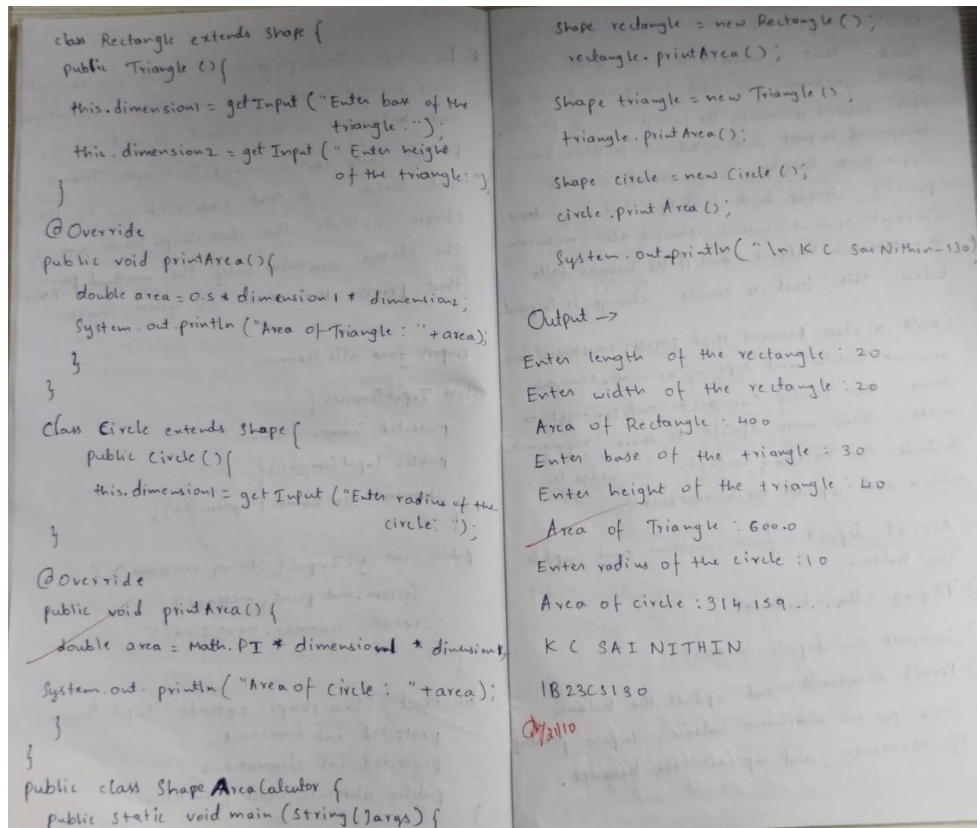 class Rectangle extends Shape {
public Triangle () {
this.dimension1 = getInput ("Enter base of the
triangle : ");
this.dimension2 = getInput (" Enter height
of the triangle: ");
}
@Override
public void printArea() {
double area = 0.5 * dimension1 * dimension2;
System.out.println ("Area of Triangle : " + area);
}
}
Class Circle extends Shape {
public Circle () {
this.dimension1 = getInput ("Enter radius of the
circle: ");
}
@Override
public void printArea() {
double area = Math.PI * dimension1 * dimension1;
System.out.println ("Area of Circle : " + area);
}
}
public class Shape Area Calculator {
public static void main (String[] args) {
Shape rectangle = new Rectangle ();
rectangle.printArea();
Shape triangle = new Triangle ();
triangle.printArea();
Shape circle = new Circle ();
circle.printArea();
System.out.println ("\n K C Sai Nithin-130)
Output ->
Enter length of the rectangle : 20
Enter width of the rectangle : 20
Area of Rectangle : 400
Enter base of the triangle : 30
Enter height of the triangle : 40
Area of Triangle : 600.0
Enter radius of the circle : 10
Area of circle : 314.159....
K C SAI NITHIN
1B23CS130
21/10